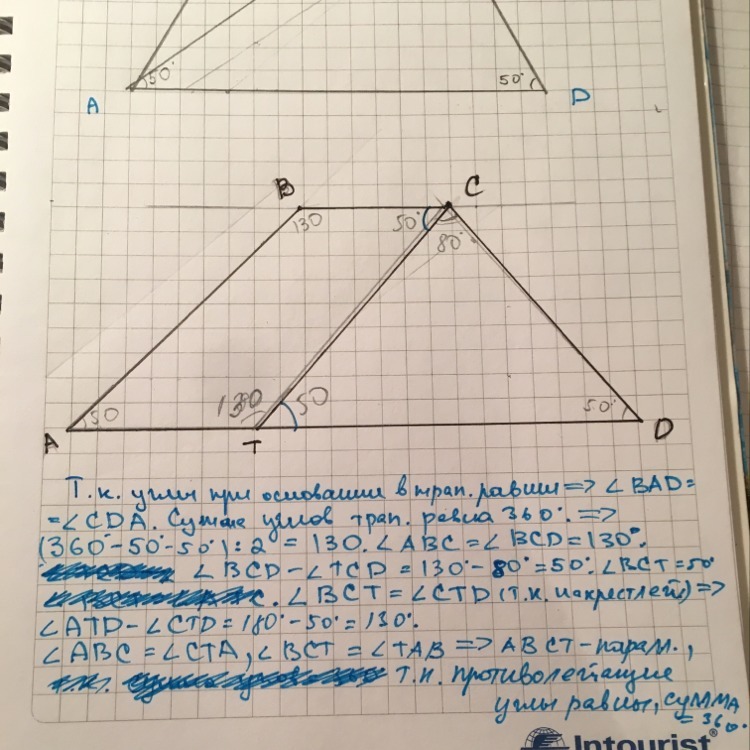 50° 50°
A D
B C
130 50° 80°
50 130 50 50°
A T D
Т.к. углы при основании в трап. равны => ∠BAD=
=∠CDA. Сумма углов трап. равна 360°. =>
(360°-50°-50°):2 = 130. ∠ABC=∠BCD=130°.
∠BCD-∠TCD = 130°-80°=50°. ∠BCT=50°
∠BCT = ∠CTD (т.к. накрестлеж) =>
∠ATD-∠CTD=180°-50°=130°.
∠ABC = ∠CTA, ∠BCT = ∠TAB => ABCT-парал.,
т.к. противолежащие
углы равны, сумма
= 360°.
Intourist®